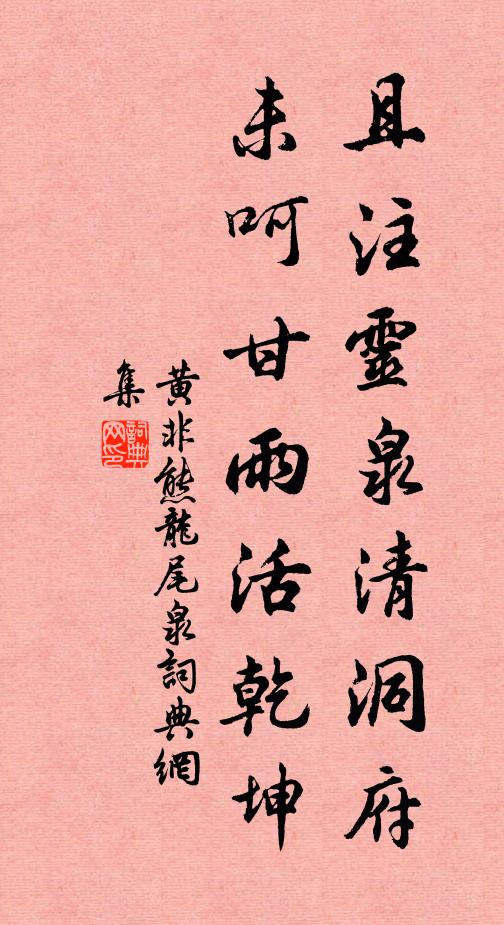 且注靈泉清洞府
未呵甘雨活乾坤
黄非熊龍尾泉詞典網
集
詞典
网印